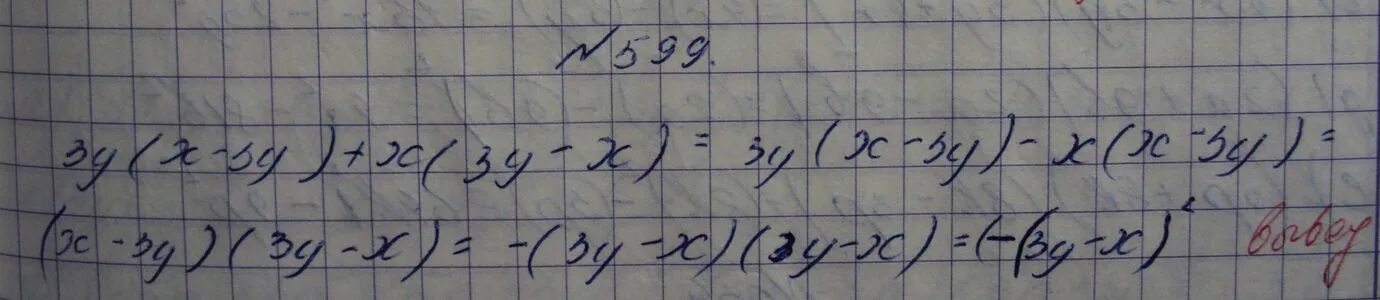 №599.
3y(x-3y)+x(3y-x)=3y(x-3y)-x(x-3y)=
(x-3y)(3y-x)=-(3y-x)(3y-x)=(-(3y-x)² вывод